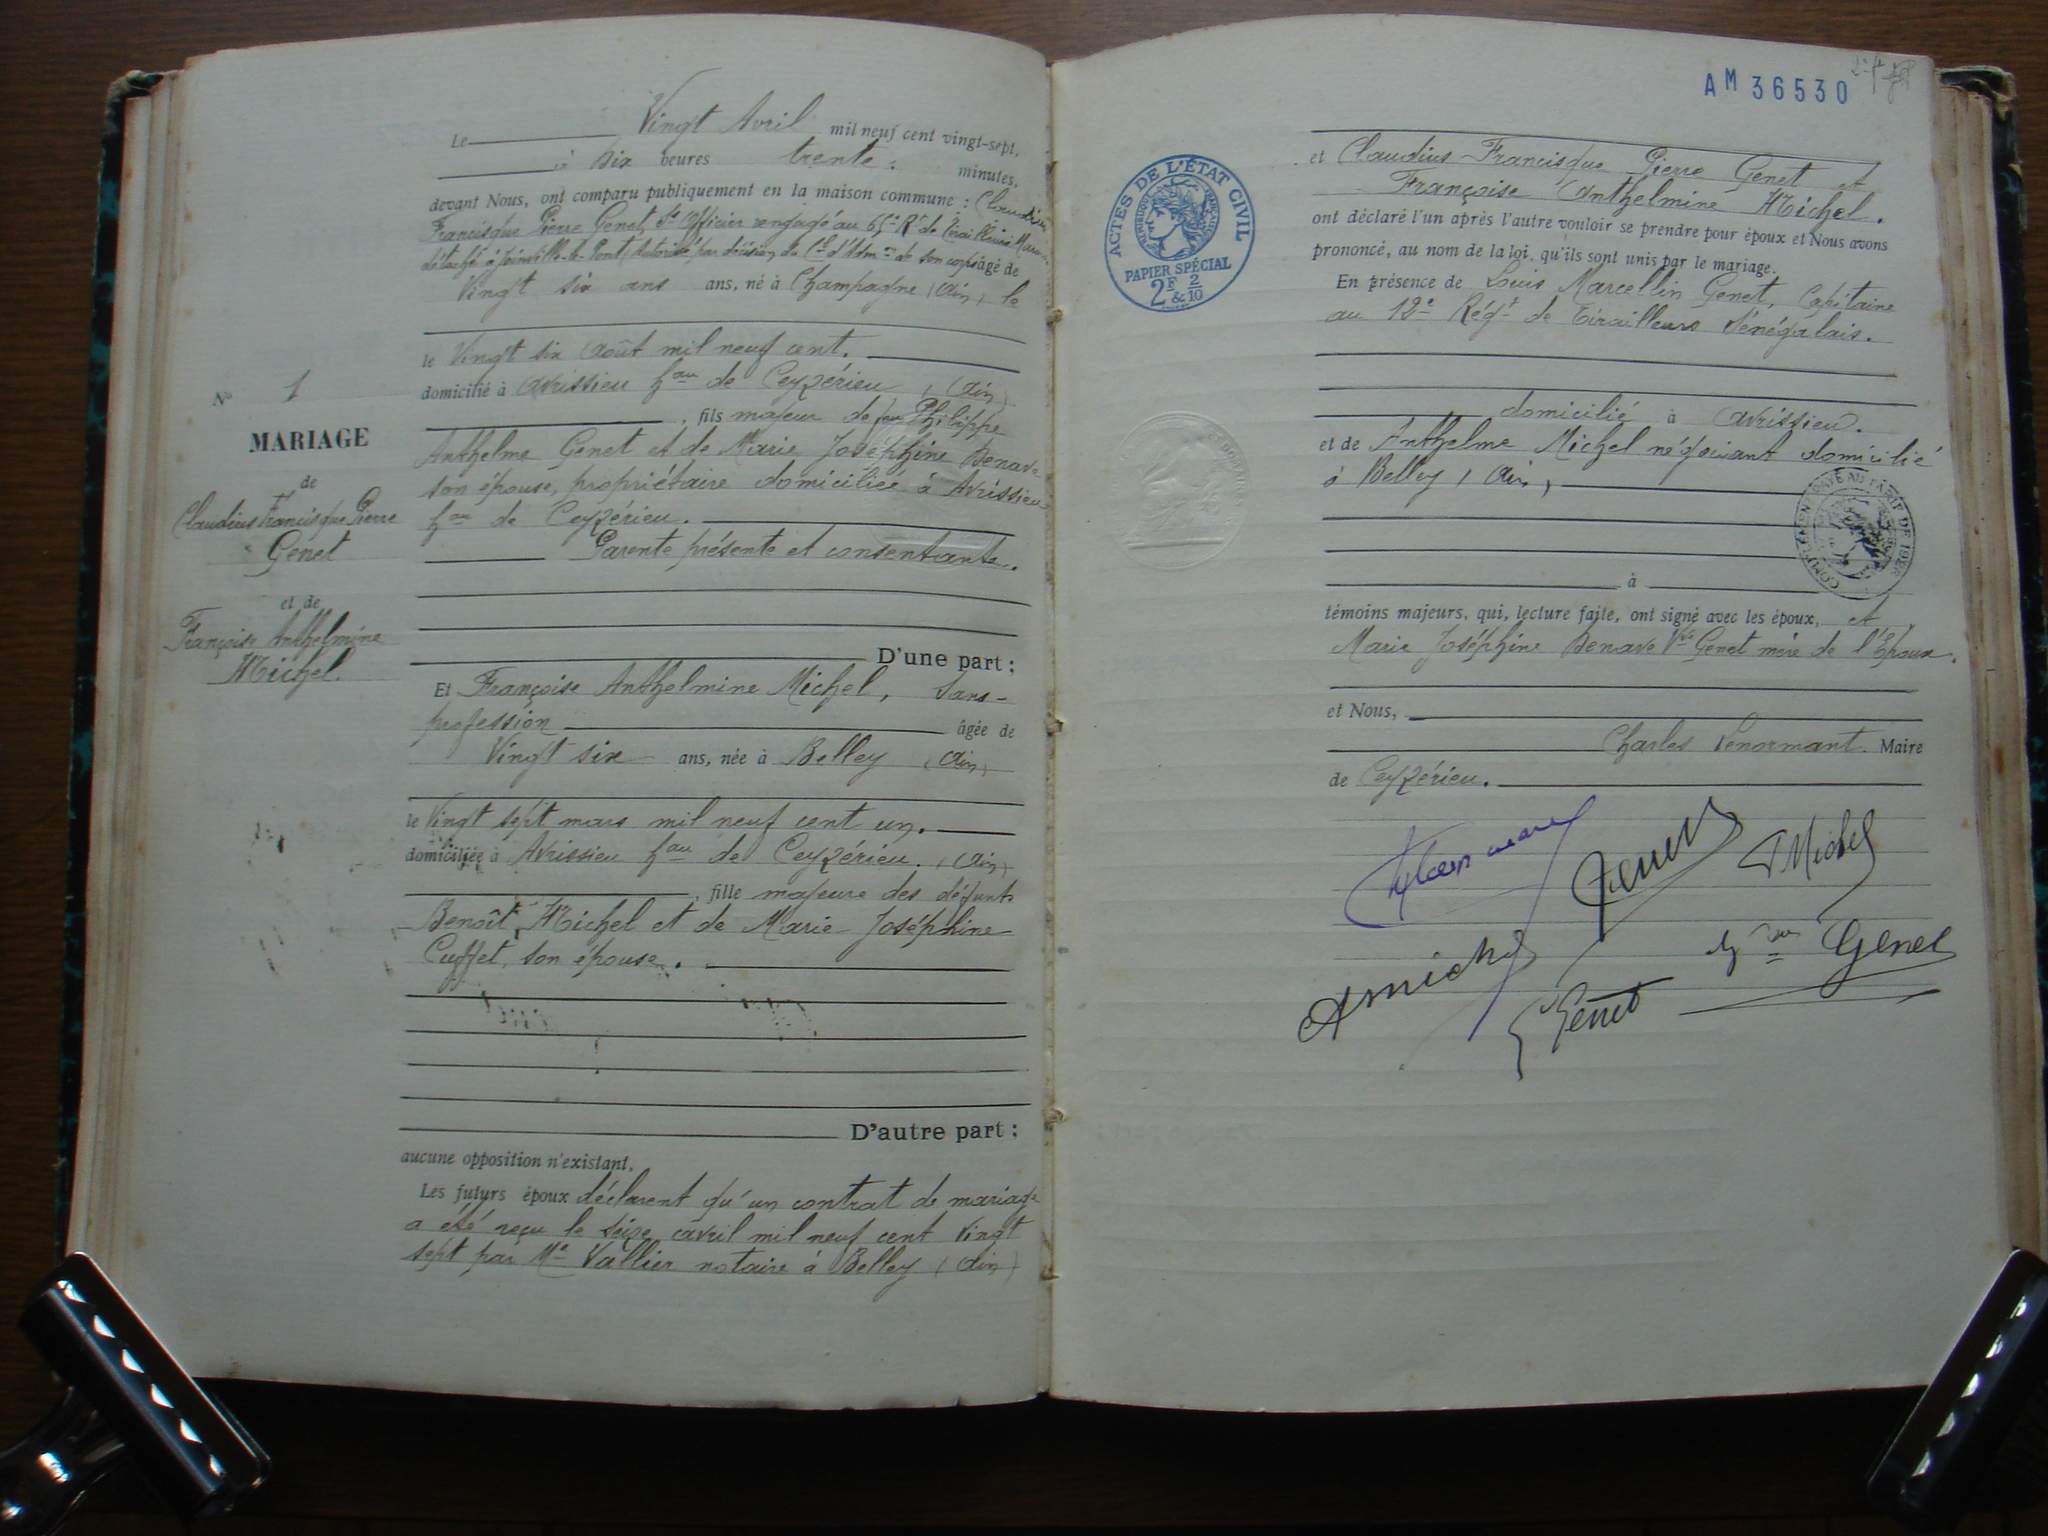 Le Vingt Avril mil neuf cent vingt-sept,
à six heures trente minutes,
devant Nous, ont comparu publiquement en la maison commune : Claudius
Francisque Pierre Genet, St Officier rengagé au 65e Rt de Tirailleurs Maroc
détaché à Joinville-le-Pont, autorisé par décision du Cl d'Admon de son corps âgé de
Vingt six ans ans, né à Champagne (Ain) le
le Vingt six Août mil neuf cent.
domicilié à Avrissieu hau de Ceyzérieu, (Ain)
, fils majeur de feu Philippe
Anthelme Genet et de Marie Joséphine Benave
son épouse, propriétaire domiciliée à Avrissieu
hau de Ceyzérieu.
Parente présente et consentante.
D'une part ;
Et Françoise Anthelmine Michel, Sans-
profession âgée de
Vingt six ans, née à Belley (Ain)
le Vingt sept mars mil neuf cent un.
domiciliée à Avrissieu hau de Ceyzérieu. (Ain)
, fille majeure des défunts
Benoît Michel et de Marie Joséphine
Cuffet, son épouse.
D'autre part ;
aucune opposition n'existant,
Les futurs époux déclarent qu'un contrat de mariage
a été reçu le seize avril mil neuf cent vingt
sept par Me Vallier notaire à Belley (Ain)
No 1
MARIAGE
de
Claudius Francisque Pierre
Genet
et de
Françoise Anthelmine
Michel.
AM 36530
ACTES DE L'ÉTAT CIVIL
RÉPUBLIQUE FRANÇAISE
PAPIER SPÉCIAL
2F & 2/10
et Claudius Francisque Pierre Genet et
Françoise Anthelmine Michel.
ont déclaré l'un après l'autre vouloir se prendre pour époux et Nous avons
prononcé, au nom de la loi, qu'ils sont unis par le mariage.
En présence de Louis Marcellin Genet, Capitaine
au 12e Régt de Tirailleurs Sénégalais.
domicilié à Avrissieu.
et de Anthelme Michel négociant domicilié
à Belley (Ain)
à
témoins majeurs, qui, lecture faite, ont signé avec les époux, et
Marie Joséphine Benave Vve Genet mère de l'Epoux.
et Nous,
Charles Lenormant Maire
de Ceyzérieu.
Genet
F Michel
A Michel
Genet
Genet